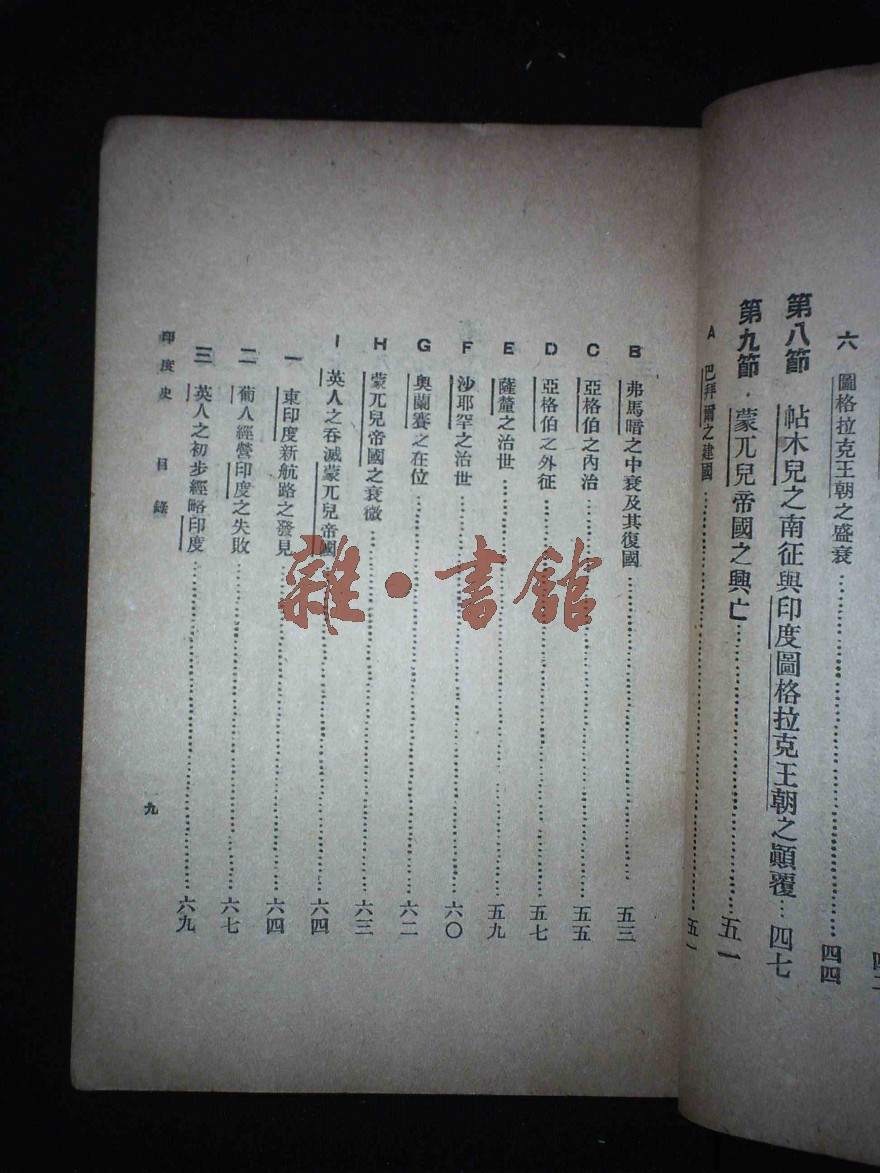 四二
六 圖格拉克王朝之盛衰……四四
第八節 帖木兒之南征與印度圖格拉克王朝之顚覆…四七
第九節 蒙兀兒帝國之興亡……五一
A 巴拜爾之建國……五一
B 弗馬暗之中衰及其復國……五三
C 亞格伯之內治……五五
D 亞格伯之外征……五七
E 薩釐之治世……五九
F 沙耶罕之治世……六〇
G 奧蘭賽之在位……六二
H 蒙兀兒帝國之衰微……六三
I 英人之吞滅蒙兀兒帝國……六四
一 東印度新航路之發見……六四
二 葡人經營印度之失敗……六七
三 英人之初步經略印度……六九
印度史 目錄
一九
雜·書館